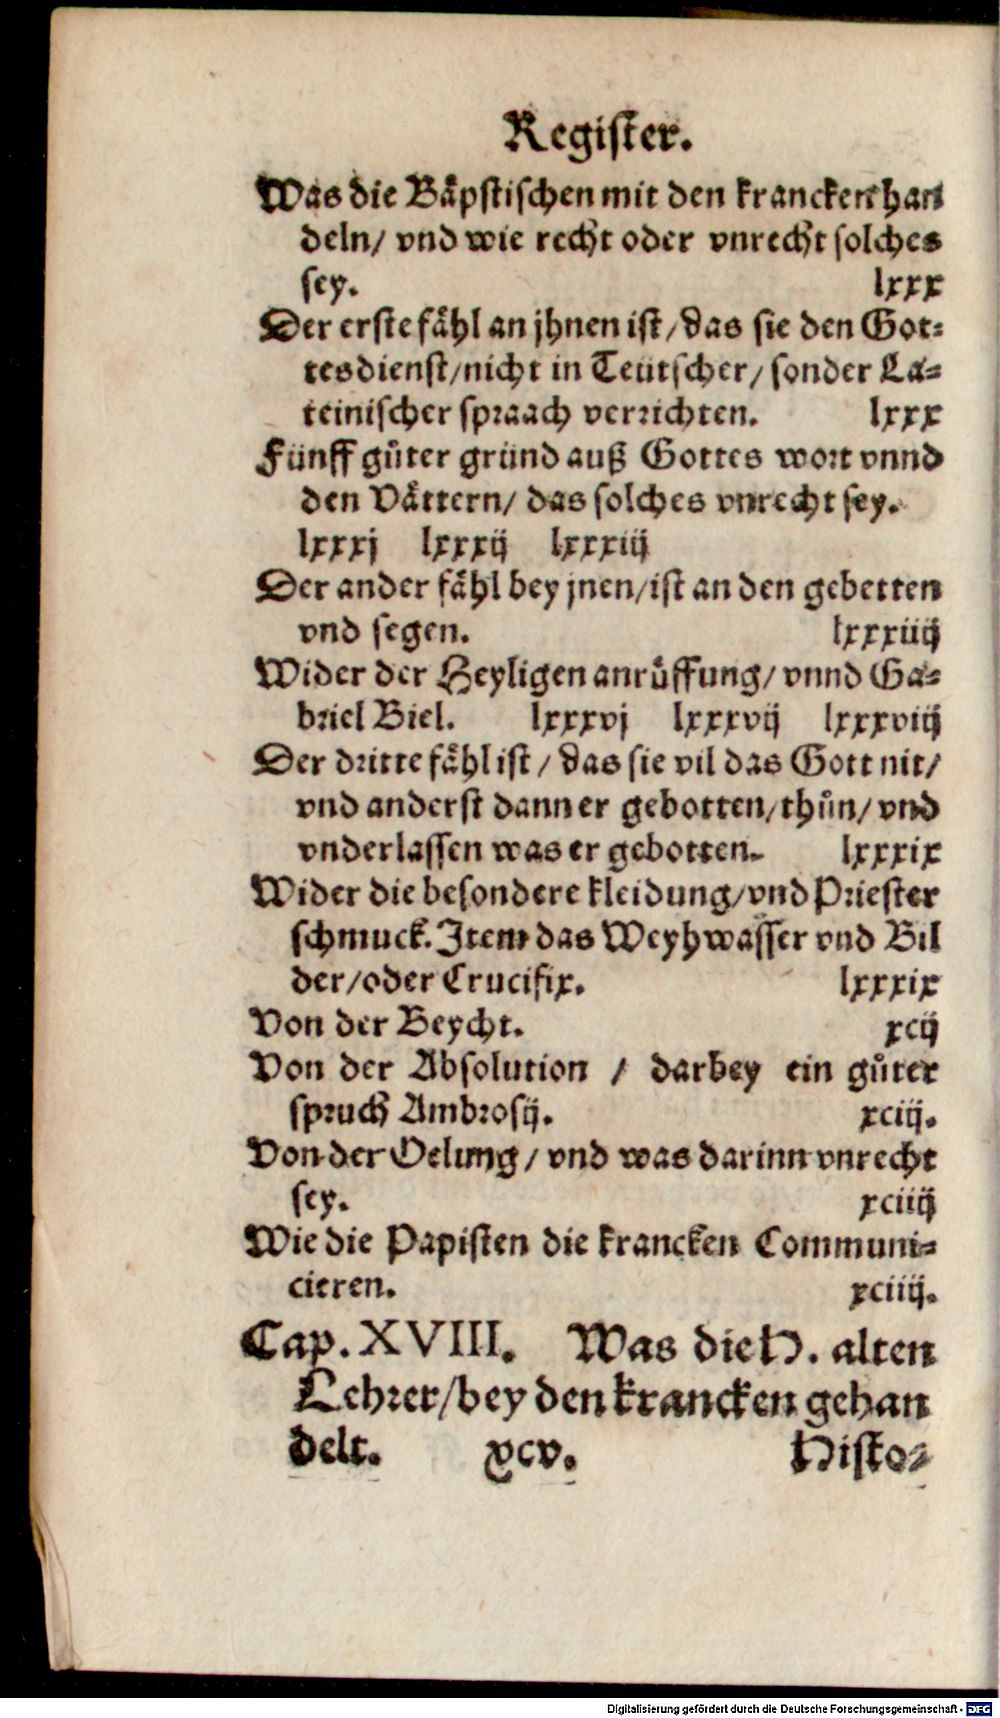 Register.
Was die Båpstischen mit den krancken han
deln/ vnd wie recht oder vnrecht solches
sey. lxxx
Der erste fåhl an jhnen ist/ das sie den Got-
tesdienst/ nicht in Teütscher/ sonder La-
teinischer spraach verrichten. lxxx
Fünff gůter gründ auß Gottes wort vnnd
den Våttern/ das solches vnrecht sey.
lxxxj lxxxij lxxxiij
Der ander fåhl bey jnen/ ist an den gebetten
vnd segen. lxxxiiij
Wider der Heyligen anrůffung/ vnnd Ga-
briel Biel. lxxxvj lxxxvij lxxxviij
Der dritte fåhl ist / das sie vil das Gott nit/
vnd anderst dann er gebotten/ thůn/ vnd
vnderlassen was er gebotten. lxxxix
Wider die besondere kleidung/ vnd Priester
schmuck. Item das Weyhwasser vnd Bil
der/ oder Crucifix. lxxxix
Von der Beycht. xcij
Von der Absolution / darbey ein gůter
spruch Ambrosij. xciij.
Von der Oelung/ vnd was darinn vnrecht
sey. xciiij
Wie die Papisten die krancken Communi-
cieren. xciiij.
Cap. XVIII. Was die H. alten
Lehrer/ bey den krancken gehan
delt. xcv. Histo-
Digitalisierung gefördert durch die Deutsche Forschungsgemeinschaft - DFG